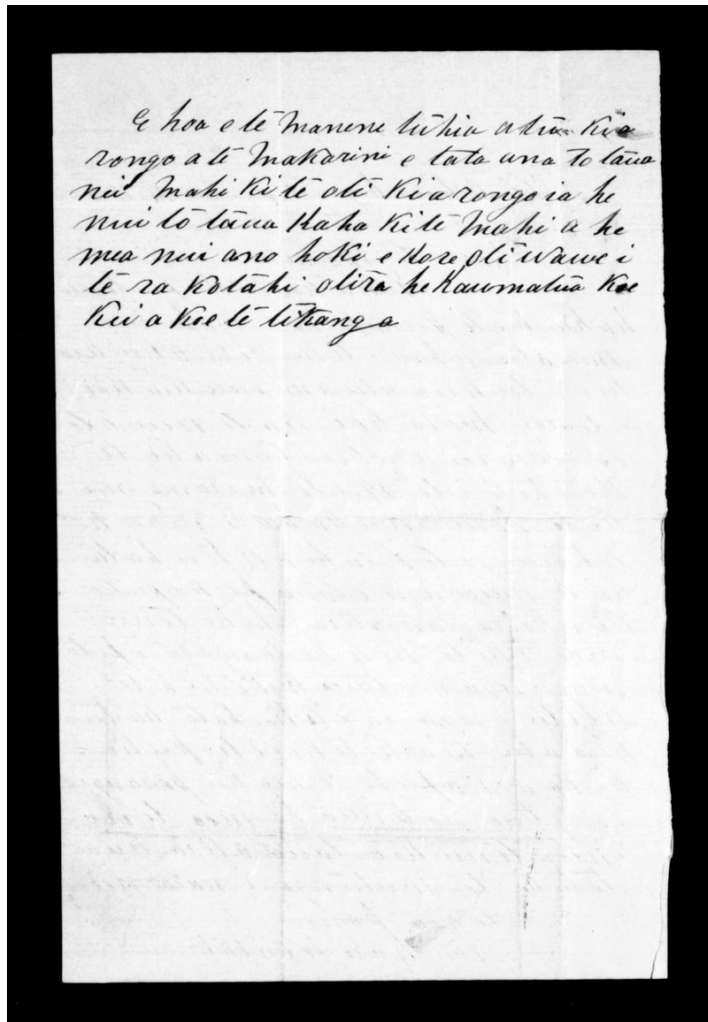 E hoa e te Manene tuhia atu Kia
rongo a te Makarini e tata ana to taua
nei Mahi Ki te oti Kia rongo ia he
nui to taua Kaha Ki te Mahi a he
mea nui ano hoki e Kore oti wawe i
te ra Kotahi otira he Kaumatua Koe
Kei a Koe te tikanga